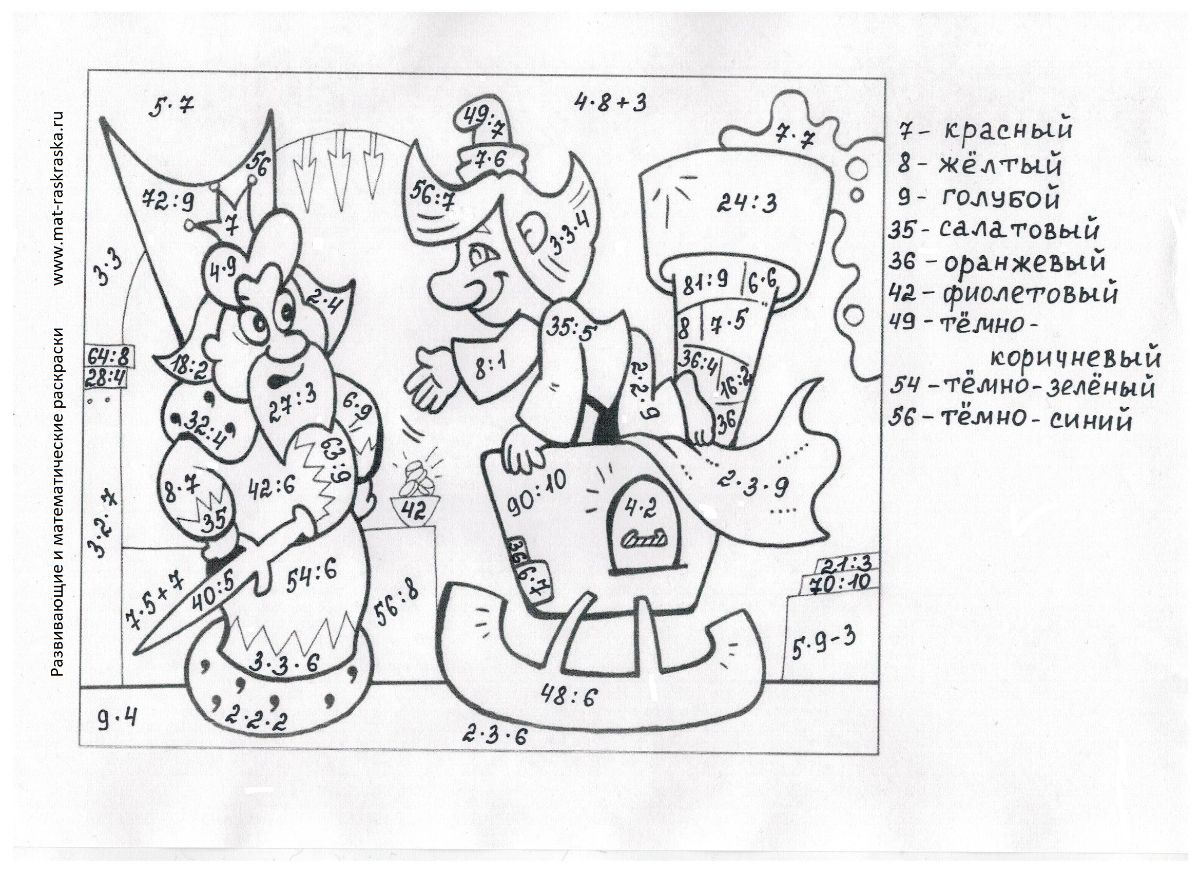 Развивающие и математические раскраски www.mat-raskraska.ru
5·7
4·8+3
49:7
7·7
7·6
56
56:7
72:9
24:3
7
3·3·4
4·9
3·3
81:9
6·6
2·4
8
7·5
35:5
64:8
18:2
8:1
36:4
16:2
28:4
2·2·9
27:3
6·9
36
32:4
63:9
8·7
42:6
90:10
2·3·9
35
42
4·2
3·2·7
36
6:7
21:3
54:6
70:10
40:5
7·5+7
56:8
5·9-3
3·3·6
48:6
2·2·2
9·4
2·3·6
7- красный
8- жёлтый
9- голубой
35- салатовый
36- оранжевый
42- фиолетовый
49- тёмно-
коричневый
54-тёмно-зелёный
56-тёмно-синий